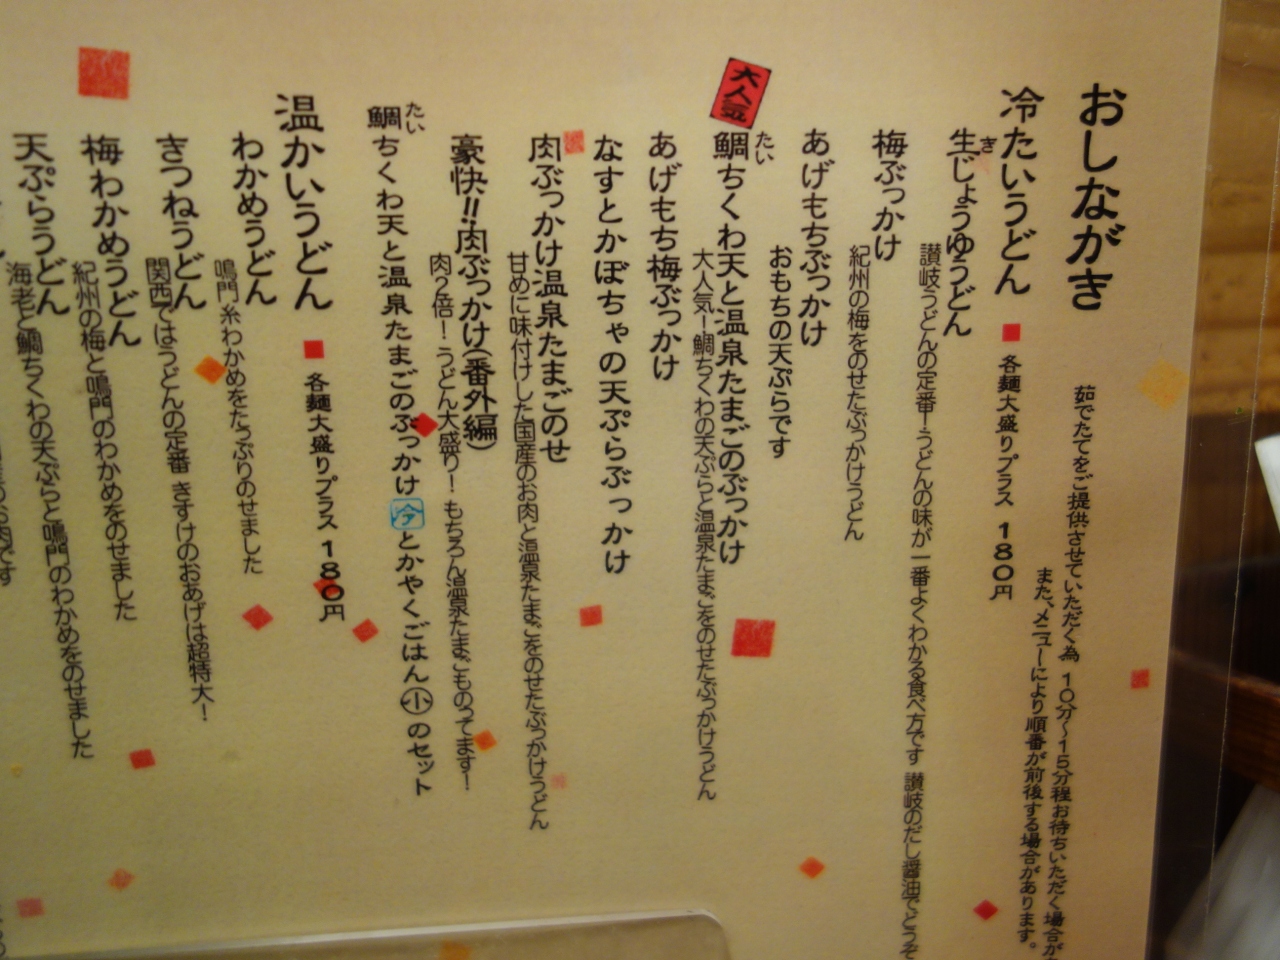 おしながき
茹でたてをご提供させていただく為 10分~15分程お待ちいただく場合が
また、メニューにより順番が前後する場合があります。
冷たいうどん ■ 各麺大盛りプラス 180円
生じょうゆうどん
き
讃岐うどんの定番!うどんの味が一番よくわかる食べ方です 讃岐のだし醤油でどうぞ
梅ぶっかけ
紀州の梅をのせたぶっかけうどん
あげもちぶっかけ
おもちの天ぷらです
大人気
鯛ちくわ天と温泉たまごのぶっかけ
たい
大人気!鯛ちくわの天ぷらと温泉たまごをのせたぶっかけうどん
あげもち梅ぶっかけ
なすとかぼちゃの天ぷらぶっかけ
肉ぶっかけ温泉たまごのせ
甘めに味付けした国産のお肉と温泉たまごをのせたぶっかけうどん
豪快!!肉ぶっかけ(番外編)
肉2倍!うどん大盛り!もちろん温泉たまごものってます!
鯛ちくわ天と温泉たまごのぶっかけ冷とかやくごはん小のセット
たい
温かいうどん ■ 各麺大盛りプラス 180円
わかめうどん
鳴門糸わかめをたっぷりのせました
きつねうどん
関西ではうどんの定番 きすけのおあげは超特大!
梅わかめうどん
紀州の梅と鳴門のわかめをのせました
天ぷらうどん
海老と鯛ちくわの天ぷらと鳴門のわかめをのせました